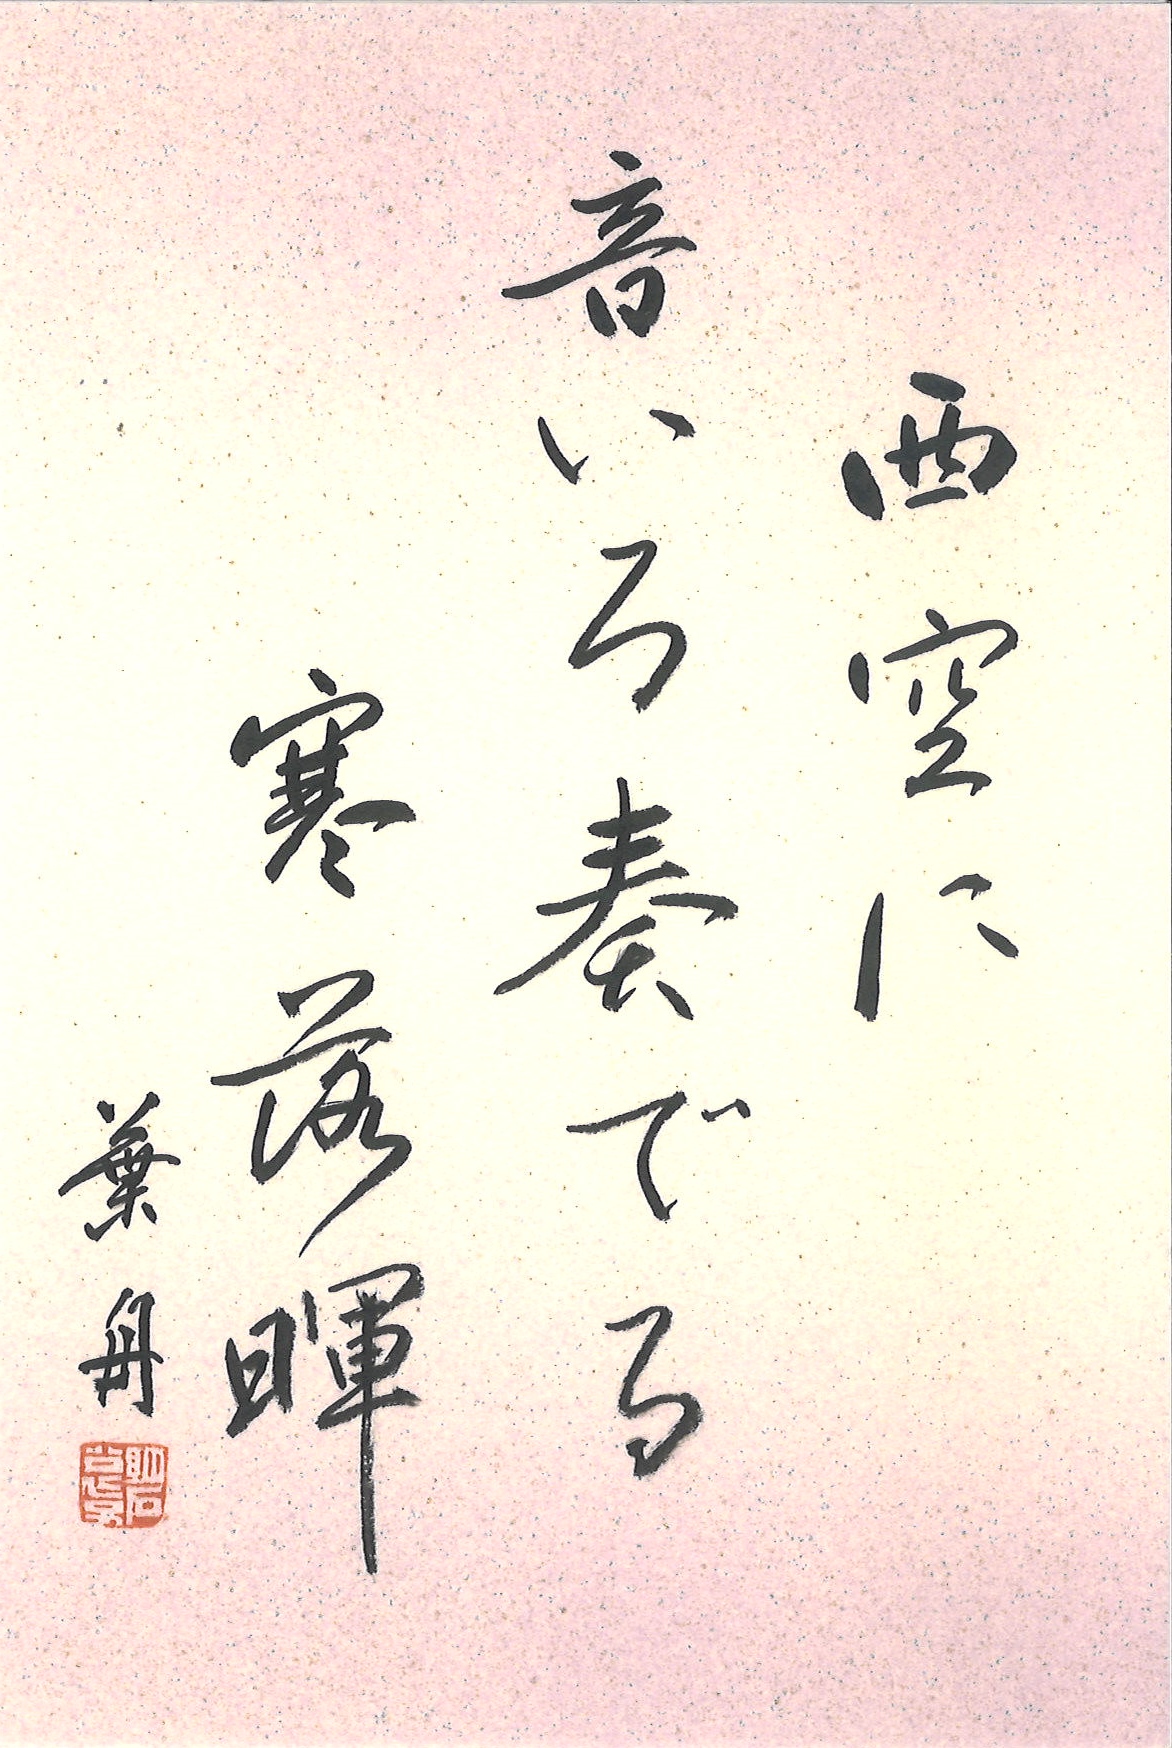 西空に
音いろ奏でる
寒落暉
葉舟